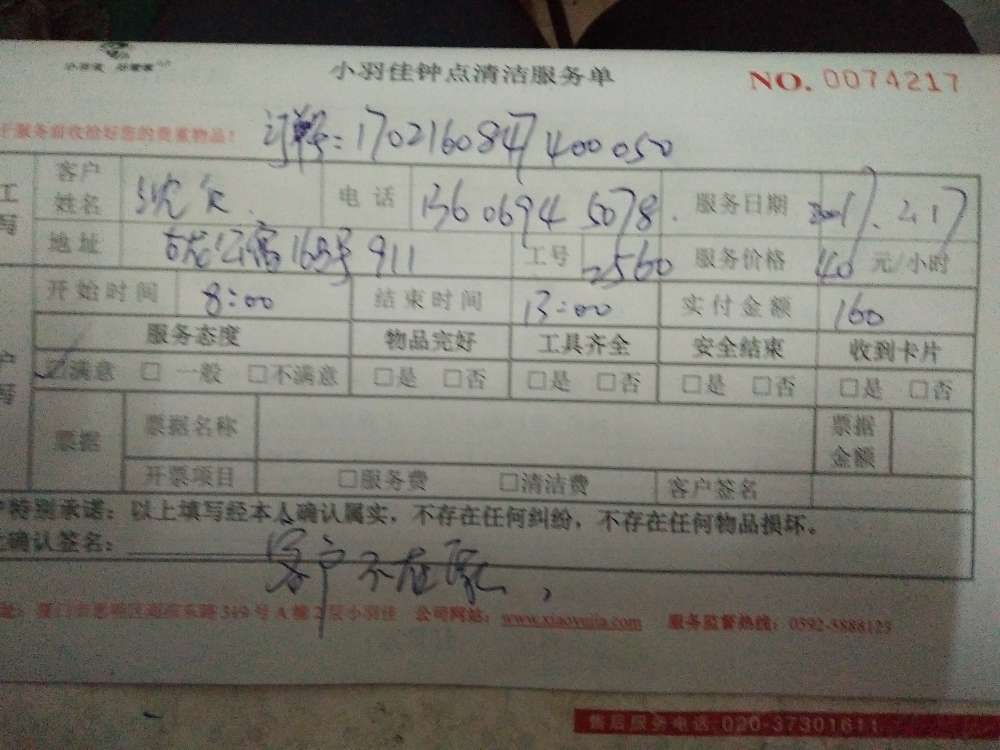 小羽佳钟点清洁服务单
NO. 0074217
服务前收拾好您的贵重物品!
订单号:170216084740050
客户姓名 电话 1360694 5078. 服务日期 2017.2.17
地址 古龙公寓165号911 工号 2560 服务价格 40 元/小时
开始时间 8:00 结束时间 13:00 实付金额 160
服务态度 物品完好 工具齐全 安全结束 收到卡片
☑满意 □一般 □不满意 □是 □否 □是 □否 □是 □否 □是 □否
票据 票据名称 票据金额
开票项目 □服务费 □清洁费 客户签名
特别承诺:以上填写经本人确认属实,不存在任何纠纷,不存在任何物品损坏。
确认签名:
客户不在家,
349号A梯2层小羽佳 公司网站:www.xiaoyujia.com 服务监督热线:0592-5888123
售后服务电话 020-37301611